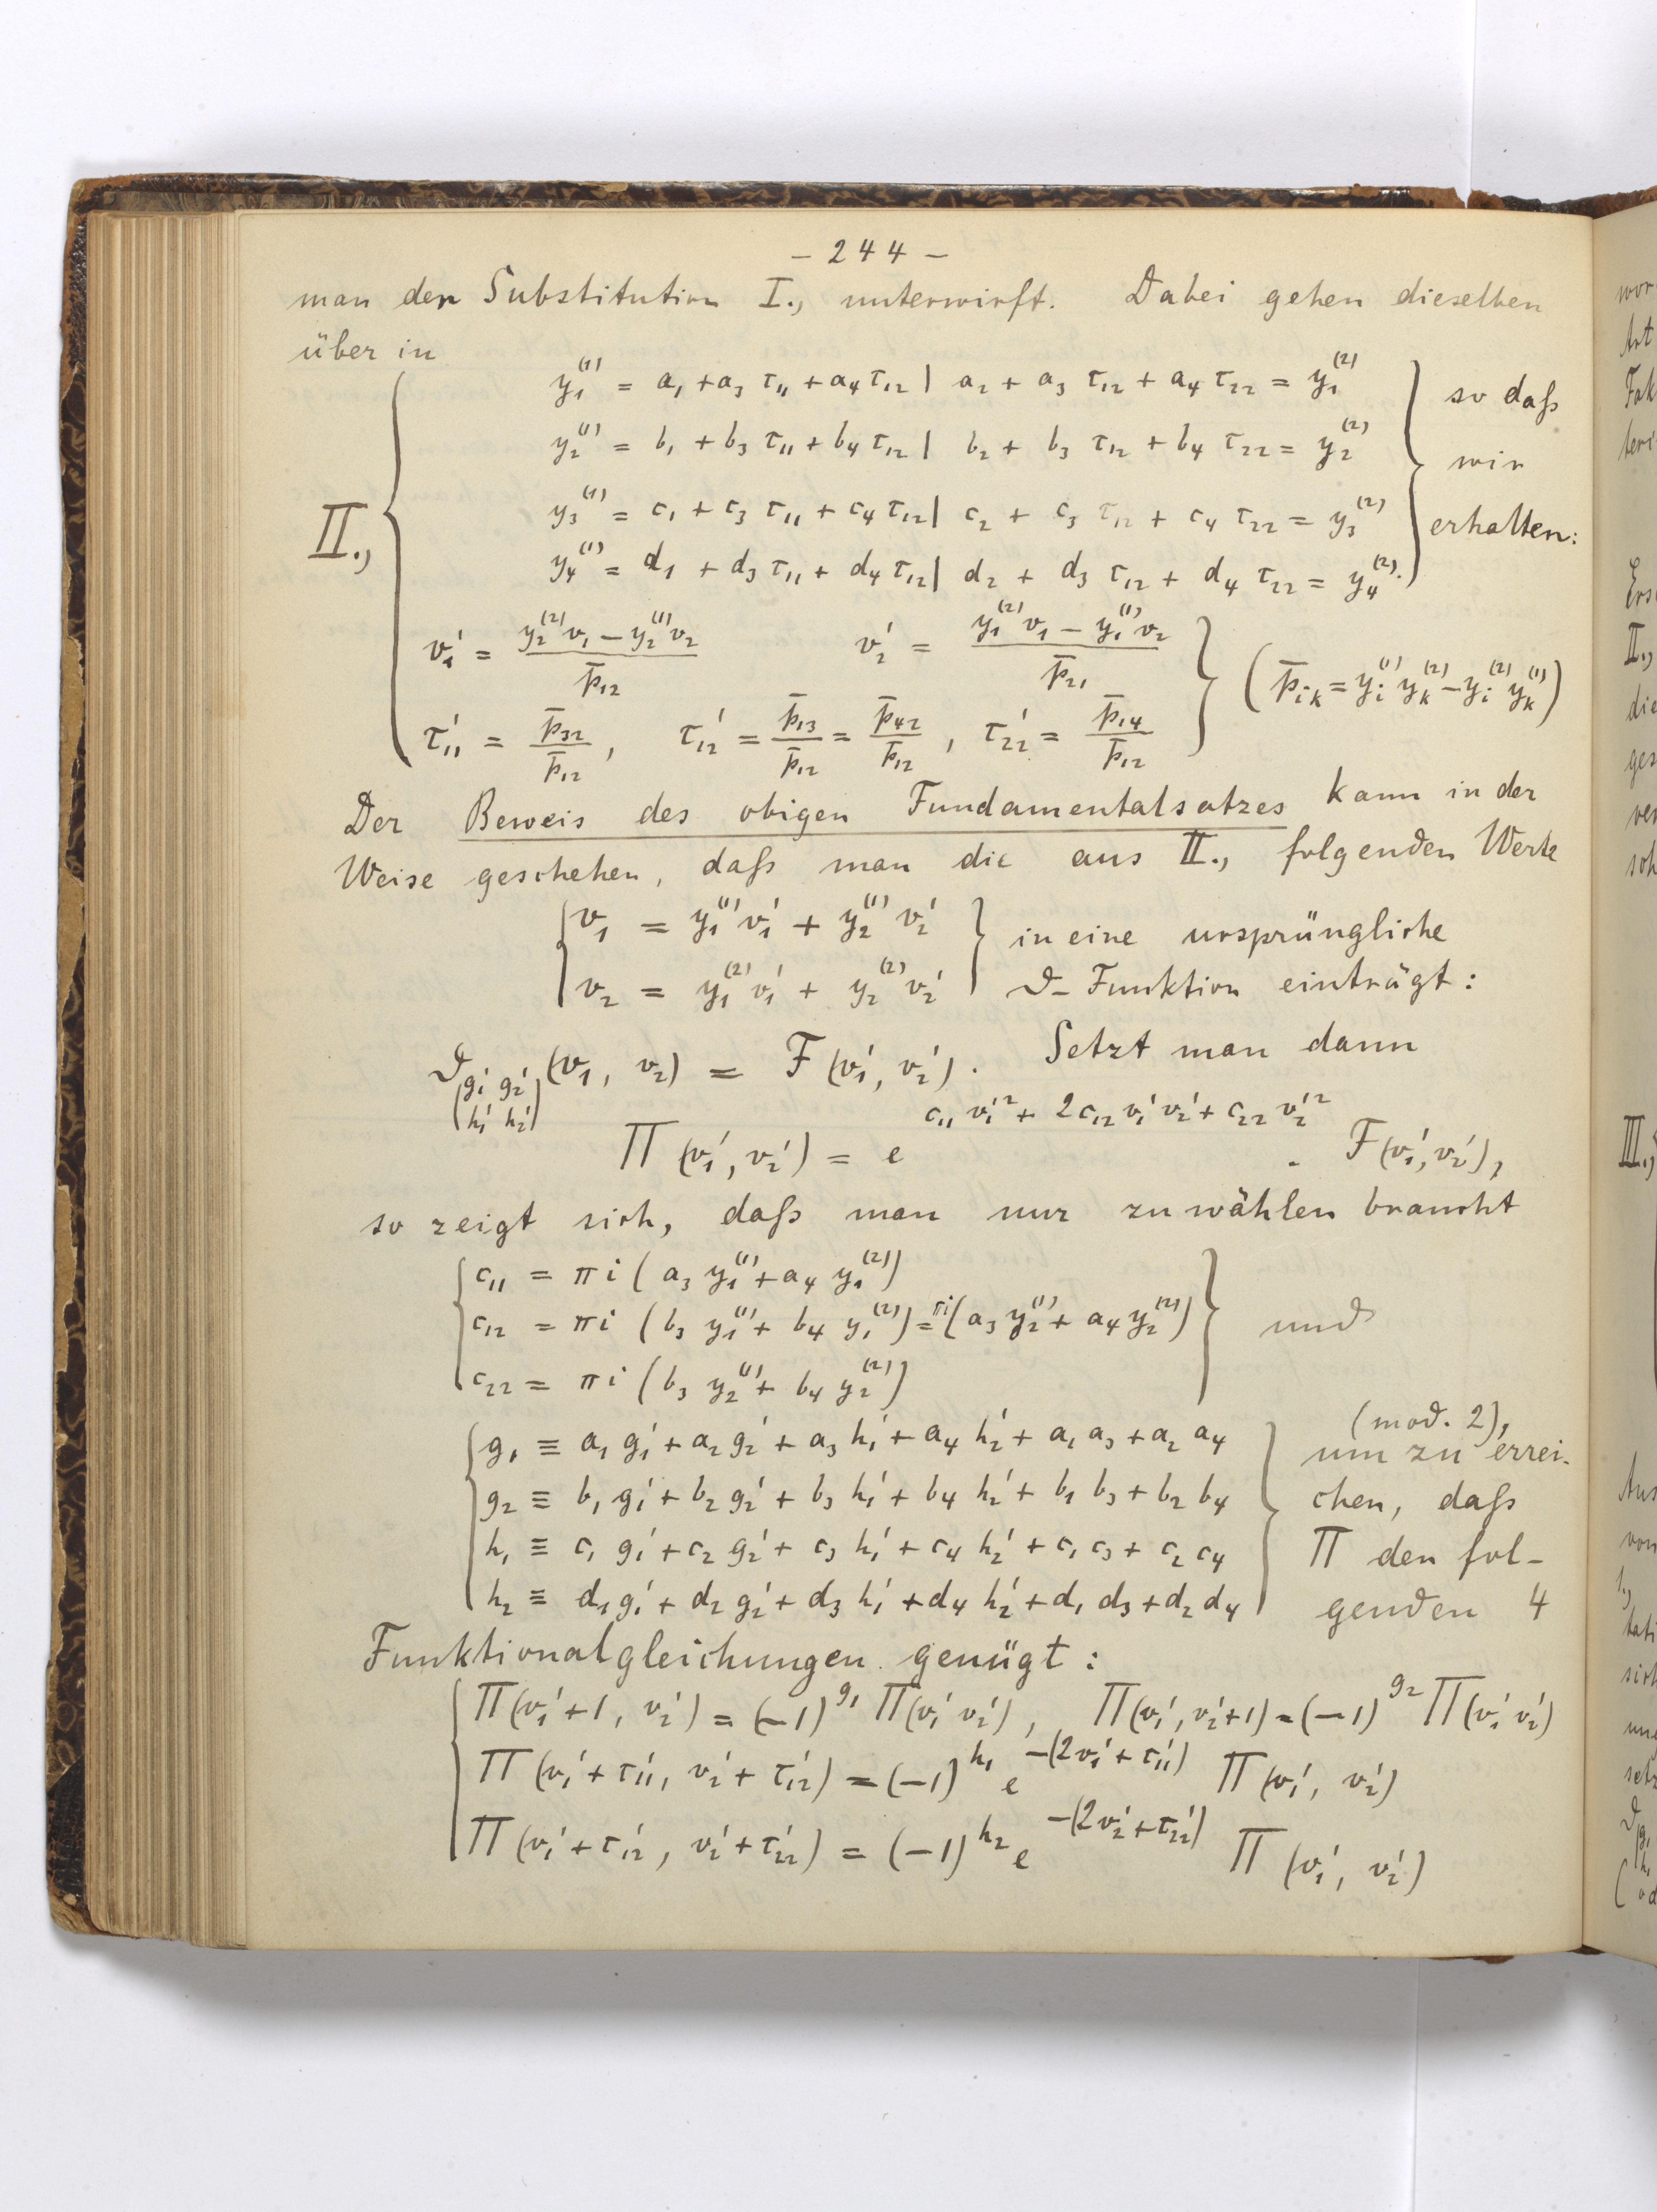 – 244 –
man der Substitution I., unterwirft. Dabei gehen dieselben
über in
y₁⁽¹⁾ = a₁ + a₃ τ₁₁ + a₄ τ₁₂ | a₂ + a₃ τ₁₂ + a₄ τ₂₂ = y₁⁽²⁾
y₂⁽¹⁾ = b₁ + b₃ τ₁₁ + b₄ τ₁₂ | b₂ + b₃ τ₁₂ + b₄ τ₂₂ = y₂⁽²⁾
II., y₃⁽¹⁾ = c₁ + c₃ τ₁₁ + c₄ τ₁₂ | c₂ + c₃ τ₁₂ + c₄ τ₂₂ = y₃⁽²⁾
y₄⁽¹⁾ = d₁ + d₃ τ₁₁ + d₄ τ₁₂ | d₂ + d₃ τ₁₂ + d₄ τ₂₂ = y₄⁽²⁾.
so daß
wir
erhalten:
v₁' = (y₂⁽²⁾v₁ – y₂⁽¹⁾v₂)/p̄₁₂ v₂' = (y₁⁽²⁾v₁ – y₁⁽¹⁾v₂)/p̄₂₁ (p̄ᵢₖ = yᵢ⁽¹⁾yₖ⁽²⁾ – yᵢ⁽²⁾yₖ⁽¹⁾)
τ₁₁' = p̄₃₂/p̄₁₂, τ₁₂' = p̄₁₃/p̄₁₂ = p̄₄₂/p̄₁₂, τ₂₂' = p̄₁₄/p̄₁₂
Der Beweis des obigen Fundamentalsatzes kann in der
Weise geschehen, daß man die aus II., folgenden Werte
v₁ = y₁⁽¹⁾v₁' + y₂⁽¹⁾v₂' in eine ursprüngliche
v₂ = y₁⁽²⁾v₁' + y₂⁽²⁾v₂' ϑ–Funktion einträgt:
ϑ(g₁' g₂' | h₁' h₂') (v₁, v₂) = F(v₁', v₂'). Setzt man dann
Π(v₁', v₂') = e^(c₁₁v₁'² + 2c₁₂v₁'v₂' + c₂₂v₂'²) . F(v₁', v₂'),
so zeigt sich, daß man nur zu wählen braucht
c₁₁ = πi (a₃ y₁⁽¹⁾ + a₄ y₁⁽²⁾)
c₁₂ = πi (b₃ y₁⁽¹⁾ + b₄ y₁⁽²⁾) = πi(a₃ y₂⁽¹⁾ + a₄ y₂⁽²⁾) und
c₂₂ = πi (b₃ y₂⁽¹⁾ + b₄ y₂⁽²⁾)
(mod. 2),
g₁ ≡ a₁ g₁' + a₂ g₂' + a₃ h₁' + a₄ h₂' + a₁ a₃ + a₂ a₄ um zu errei-
g₂ ≡ b₁ g₁' + b₂ g₂' + b₃ h₁' + b₄ h₂' + b₁ b₃ + b₂ b₄ chen, daß
h₁ ≡ c₁ g₁' + c₂ g₂' + c₃ h₁' + c₄ h₂' + c₁ c₃ + c₂ c₄ Π den fol-
h₂ ≡ d₁ g₁' + d₂ g₂' + d₃ h₁' + d₄ h₂' + d₁ d₃ + d₂ d₄ genden 4
Funktionalgleichungen genügt:
Π(v₁'+1, v₂') = (–1)^g₁ Π(v₁' v₂'), Π(v₁', v₂'+1) = (–1)^g₂ Π(v₁' v₂')
Π(v₁'+τ₁₁', v₂'+τ₁₂') = (–1)^h₁ e^–(2v₁'+τ₁₁') Π(v₁', v₂')
Π(v₁'+τ₁₂', v₂'+τ₂₂') = (–1)^h₂ e^–(2v₂'+τ₂₂') Π(v₁', v₂')